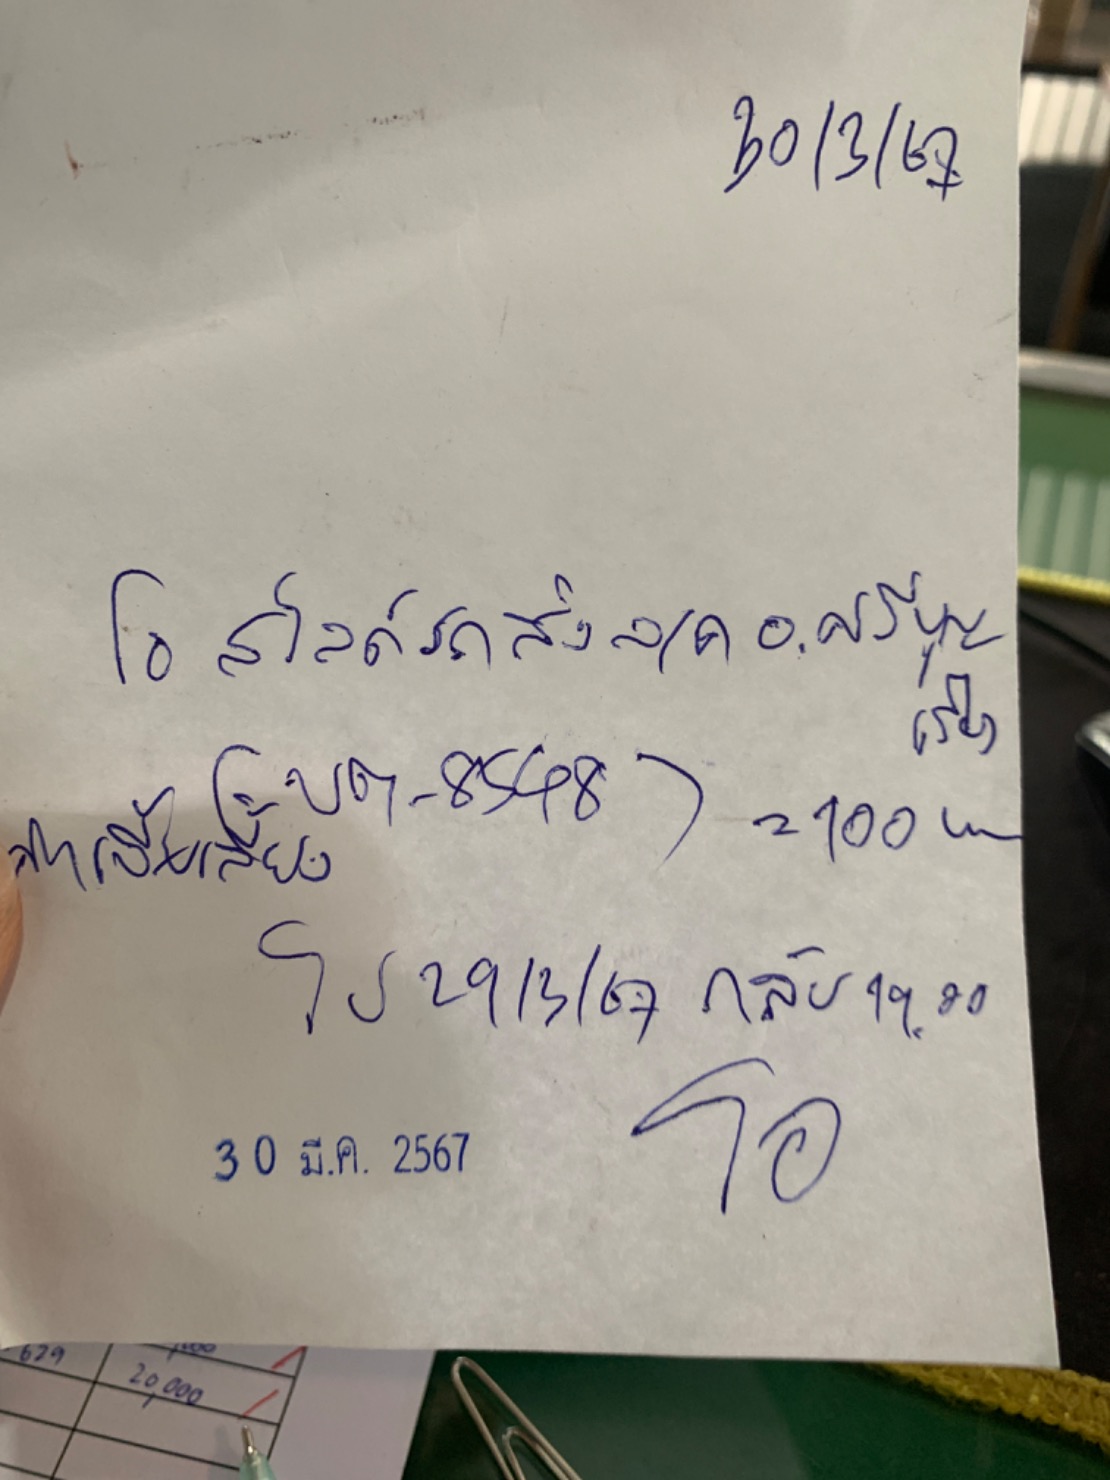 30/3/67
โอ สไลด์รถส่ง ล/ค อ.ศรีบุญ
เรือง
(บต-8548) = 100 บาท
ค่าเบี้ยเลี้ยง
ไป 29/3/67 กลับ 19.00
โอ
30 มี.ค. 2567
629
20,000